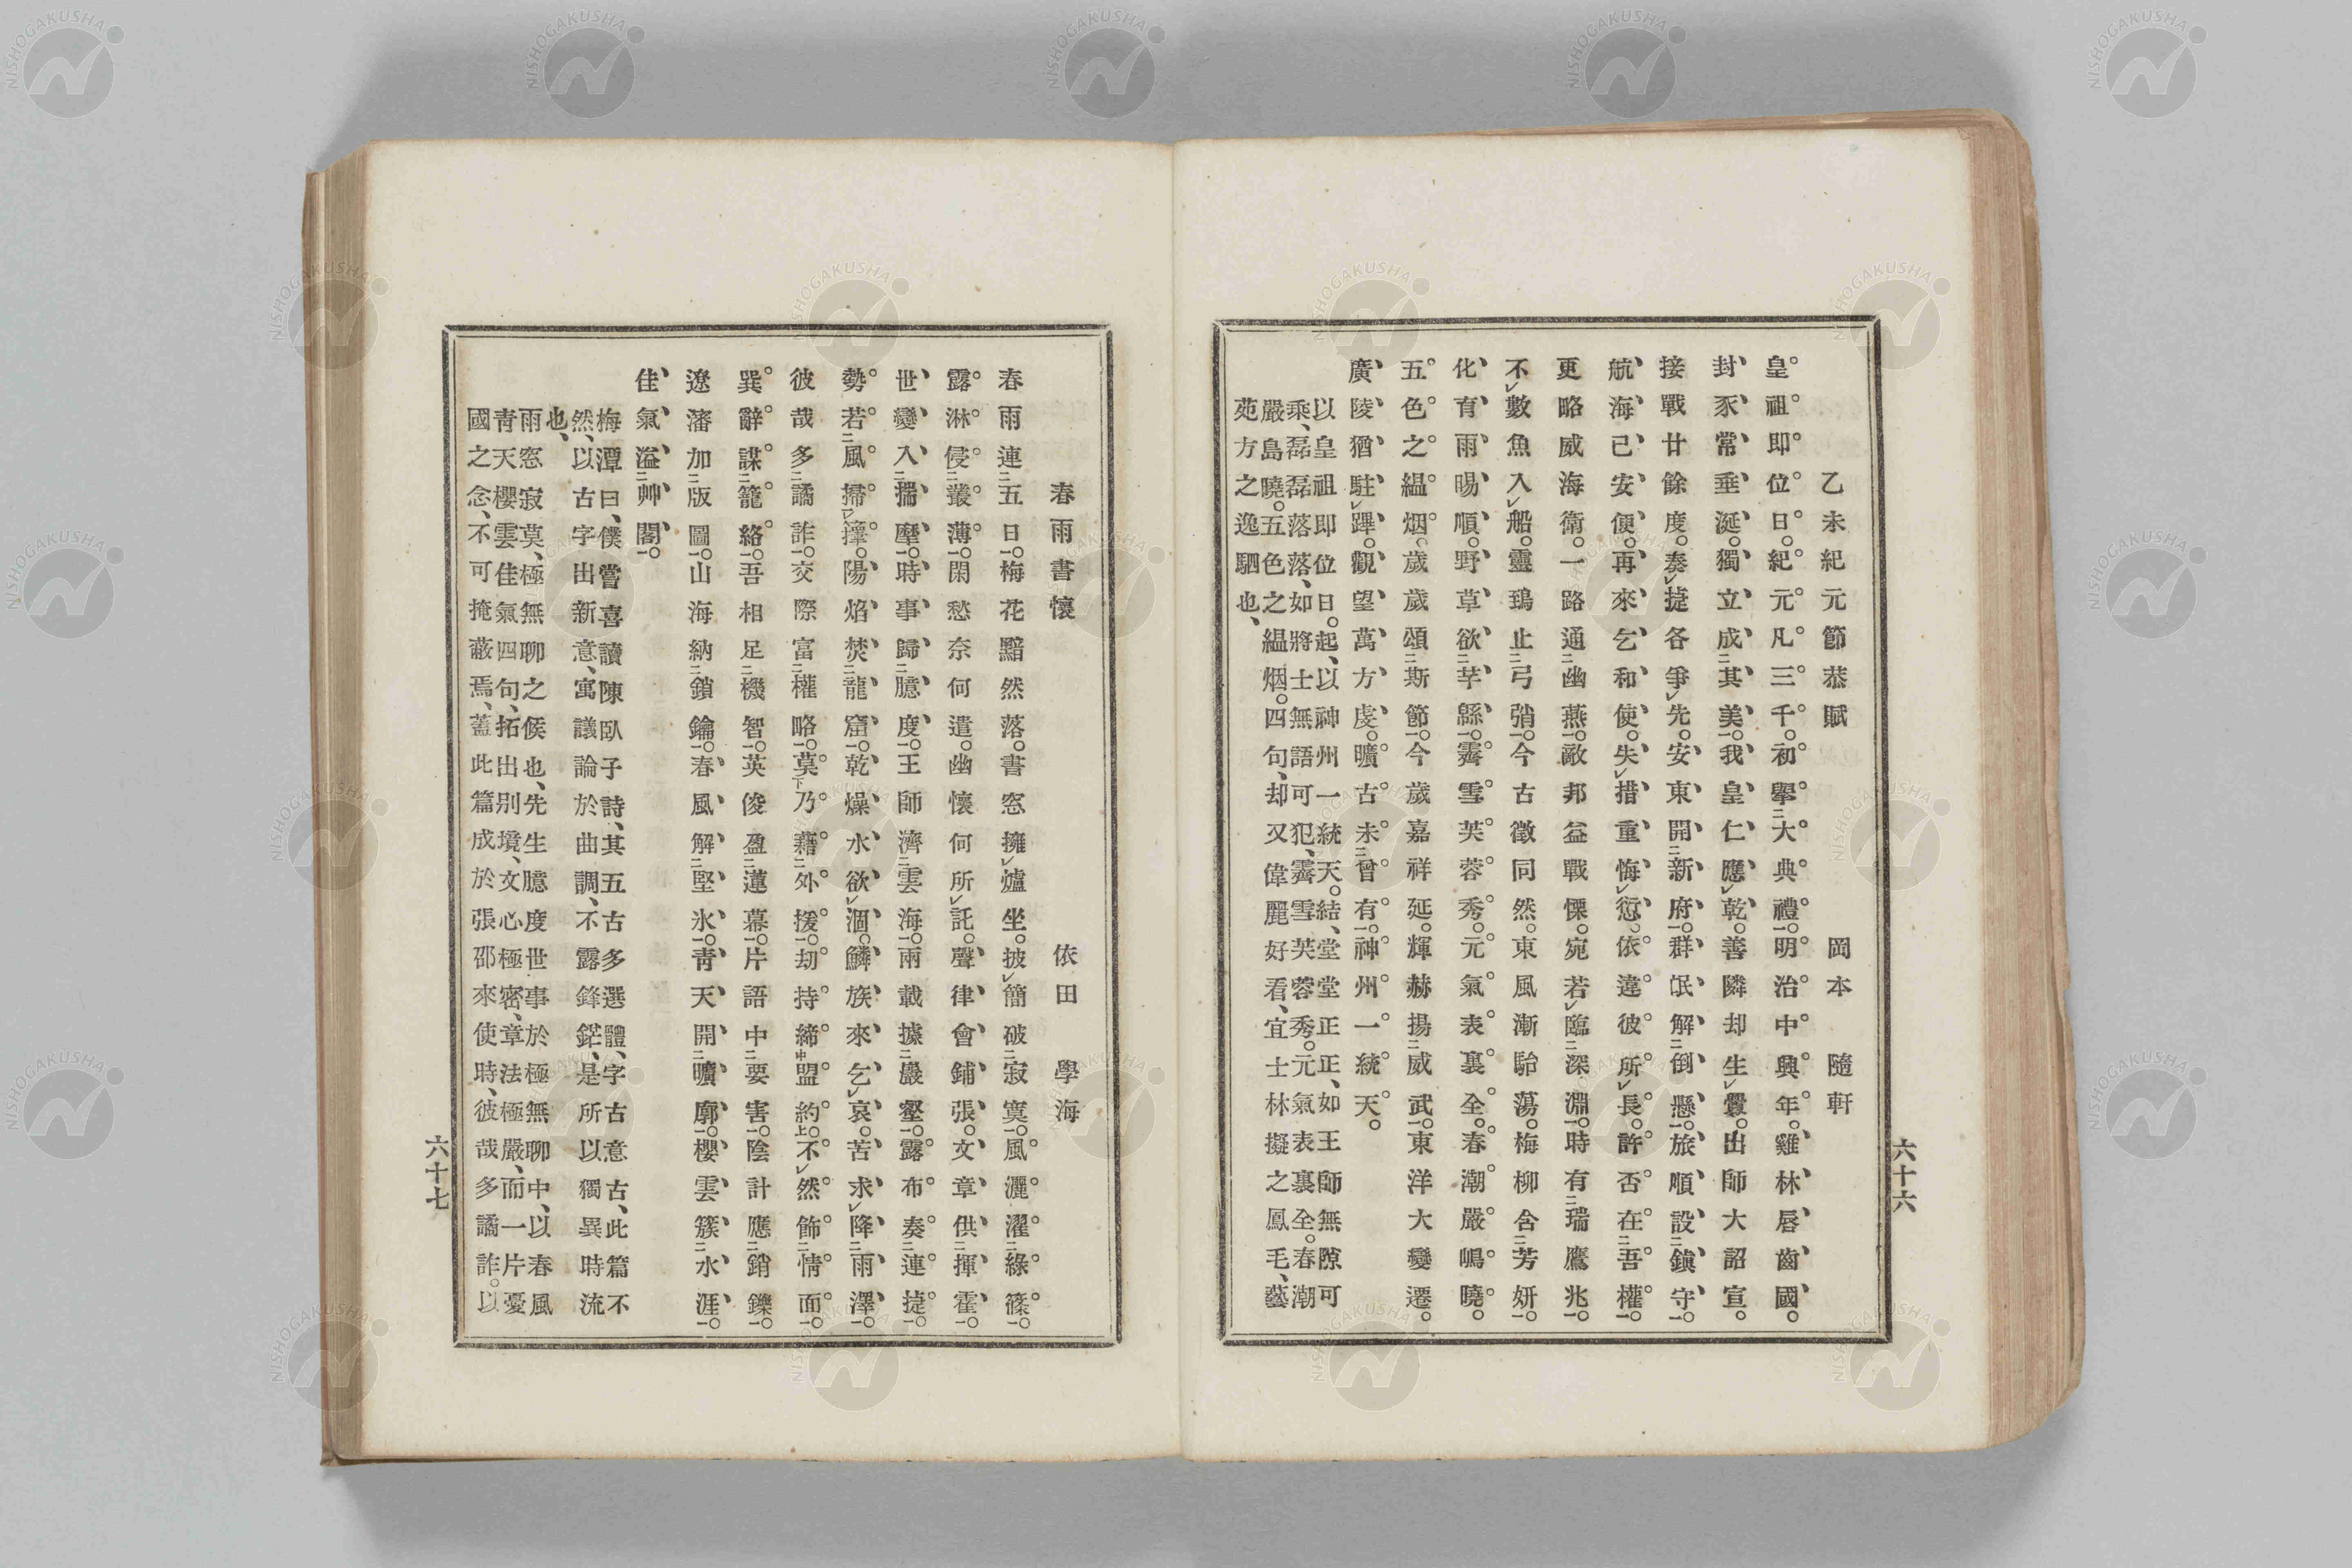 乙未紀元節恭賦　岡本　隨軒
皇祖即位日。紀元凡三千。初擧大典禮。明治中興年。雞林唇齒國。
封豕常垂涎。獨立成其美。我皇仁應乾。善隣却生釁。出師大詔宣。
接戰廿餘度。奏捷各爭先。安東開新府。群氓解倒懸。旅順設鎭守。
航海已安便。再來乞和使。失措重悔愆。依違彼所長。許否在吾權。
更略威海衛。一路通幽燕。敵邦益戰慄。宛若臨深淵。時有瑞鷹兆。
不數魚入船。靈鵄止弓弰。今古徵同然。東風漸駘蕩。梅柳含芳妍。
化育雨暘順。野草欲芊緜。霽雪芙蓉秀。元氣表裏全。春潮嚴嶋曉。
五色之縕烟。歲歲頌斯節。今歲嘉祥延。輝赫揚威武。東洋大變遷。
廣陵猶駐蹕。觀望萬方虔。曠古未曾有。神州一統天。
以皇祖即位日。起、以神州一統天。結、堂堂正正、如王師無隙可
乘、磊磊落落、如將士無語可犯、霽雪芙蓉秀。元氣表裏全。春潮
嚴島曉。五色之縕烟。四句、却又偉麗好看、宜士林擬之鳳毛、藝
苑方之逸駟也、
六十六
春雨書懷　依田　學海
春雨連五日。梅花黯然落。書窓擁爐坐。披簡破寂寞。風灑濯綠篠。
露淋侵叢薄。閑愁奈何遣。幽懷何所託。聲律會鋪張。文章供揮霍。
世變入揣摩。時事歸臆度。王師濟雲海。兩載據巖壑。露布奏連捷。
勢若風掃籜。陽焰焚龍窟。乾燥水欲涸。鱗族來乞哀。苦求降雨澤。
彼哉多譎詐。交際富權略。莫乃藉外援。劫持締盟約。不然飾情面。
巽辭謀籠絡。吾相足機智。英俊盈蓮幕。片語中要害。陰計應銷鑠。
遼瀋加版圖。山海納鎖鑰。春風解堅氷。靑天開曠廓。櫻雲簇水涯。
佳氣溢艸閣。
梅潭曰、僕嘗喜讀陳臥子詩、其五古多選體、字古意古、此篇不
然、以古字出新意、寓議論於曲調、不露鋒鋩、是所以獨異時流
也、
雨窓寂莫、極無聊之候也、先生臆度世事於極無聊中、以春風
靑天櫻雲佳氣四句、拓出別境、文心極密、章法極嚴、而一片憂
國之念、不可掩蔽焉、蓋此篇成於張邵來使時、彼哉多譎詐。以
六十七